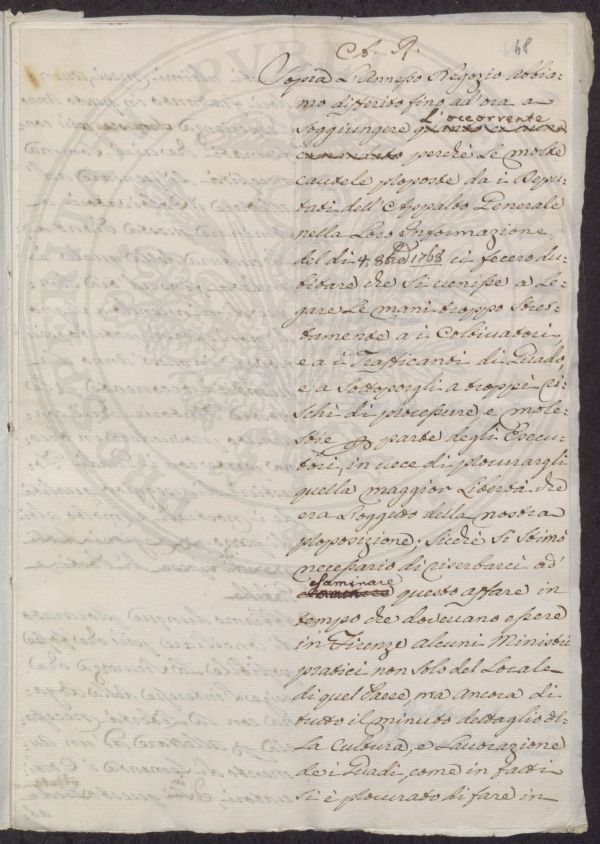 48
A. R.
Sopra L'annesso Negozio abbia-
mo diferito fino ad'ora a
L'occorrente
soggiungere
perchè Le molte
cautele proposte da i Depu-
tati dell'Appalto Generale
nella Loro Informazione
del di 4. 8bre 1768 ci fecero du-
bitare che si venisse a Le-
gare Le mani troppo stret-
tamente a i Coltivatori
e a i Trafficanti di Guado,
e a sottoporgli a troppi ri-
schi di processure e mole-
stie p parte degli Esecu-
tori, in vece di procurargli
quella maggior Libertà che
era L'oggetto della nostra
proposizione; Sicchè si stimò
necessario di riserbarci ad'
esaminare
questo affare in
tempo che dovevano essere
in Firenze alcuni Ministri
pratici non solo del Locale
di quel Paese ma ancora di
tutto il minuto dettaglio del-
La Cultura, e Lavorazione
dei Guadi, come in fatti
si è procurato di fare in